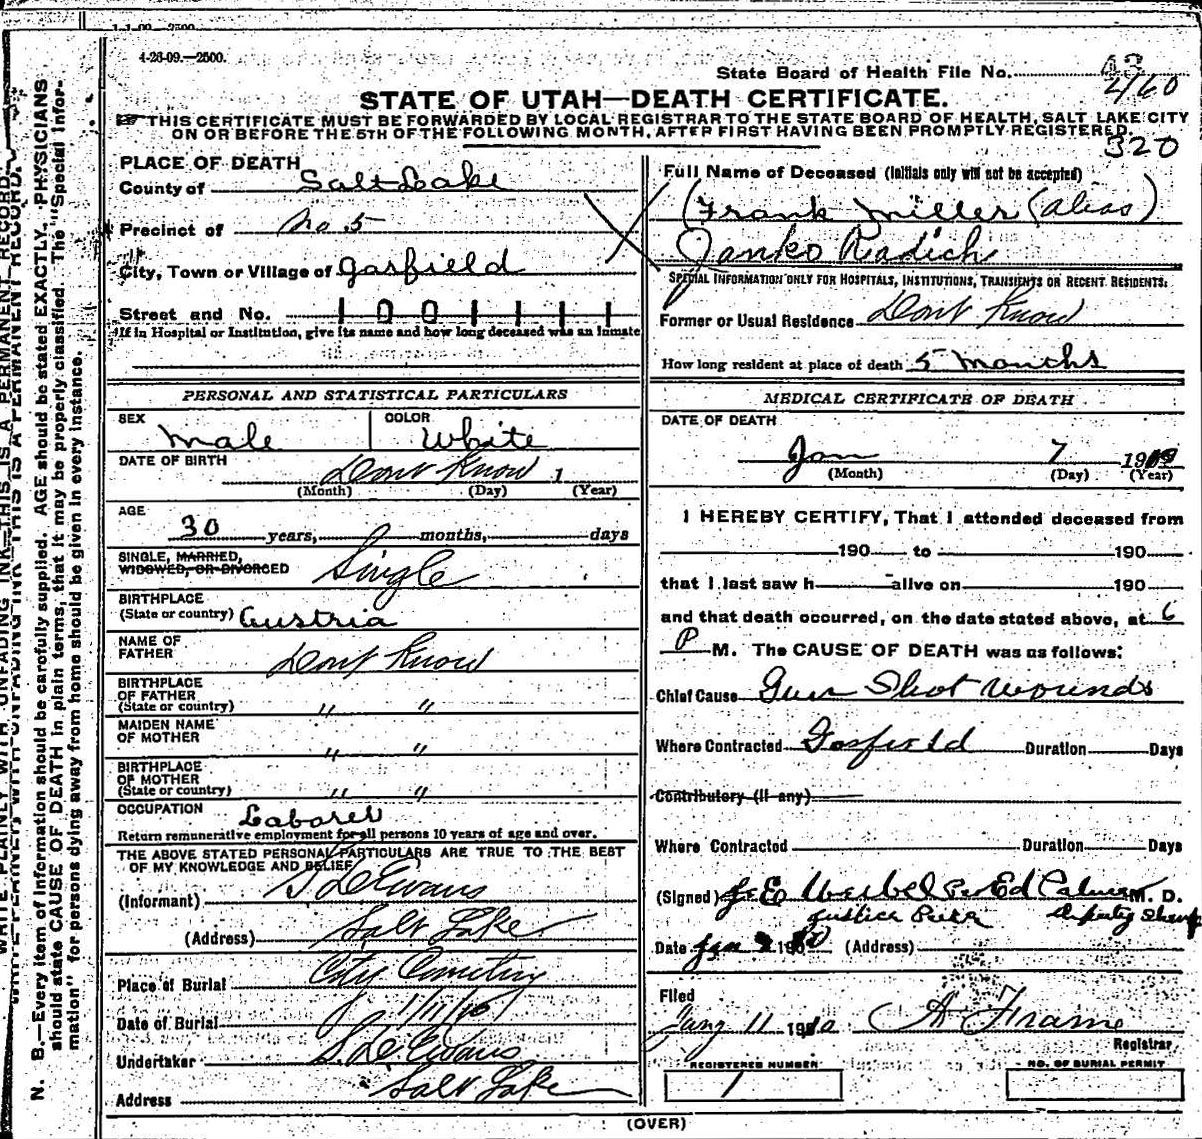 4-26-09.—2500.
State Board of Health File No. 43
2/60
STATE OF UTAH—DEATH CERTIFICATE.
THIS CERTIFICATE MUST BE FORWARDED BY LOCAL REGISTRAR TO THE STATE BOARD OF HEALTH, SALT LAKE CITY
ON OR BEFORE THE 5TH OF THE FOLLOWING MONTH, AFTER FIRST HAVING BEEN PROMPTLY REGISTERED.
320
WRITE PLAINLY WITH UNFADING INK—THIS IS A PERMANENT RECORD.
N. B.—Every item of information should be carefully supplied. AGE should be stated EXACTLY. PHYSICIANS
should state CAUSE OF DEATH in plain terms, that it may be properly classified. The "Special Infor-
mation" for persons dying away from home should be given in every instance.
PLACE OF DEATH
County of Salt Lake
Precinct of No. 5
City, Town or Village of Garfield
Street and No. 1 0 0 1 1 1 1
If in Hospital or Institution, give its name and how long deceased was an inmate
PERSONAL AND STATISTICAL PARTICULARS
SEX Male
COLOR White
DATE OF BIRTH Dont Know 1
(Month) (Day) (Year)
AGE
30 years, months, days
SINGLE, MARRIED,
WIDOWED, OR DIVORCED Single
BIRTHPLACE
(State or country) Austria
NAME OF
FATHER Dont Know
BIRTHPLACE
OF FATHER
(State or country) " "
MAIDEN NAME
OF MOTHER " "
BIRTHPLACE
OF MOTHER
(State or country) " "
OCCUPATION Laborer
Return remunerative employment for all persons 10 years of age and over.
THE ABOVE STATED PERSONAL PARTICULARS ARE TRUE TO THE BEST
OF MY KNOWLEDGE AND BELIEF
(Informant) S. D. Evans
(Address) Salt Lake
Place of Burial City Cemetery
Date of Burial 1/11/10
Undertaker S. D. Evans
Address Salt Lake
Full Name of Deceased (Initials only will not be accepted)
(Frank Miller (alias)
Janko Radich
SPECIAL INFORMATION ONLY FOR HOSPITALS, INSTITUTIONS, TRANSIENTS OR RECENT RESIDENTS:
Former or Usual Residence Dont Know
How long resident at place of death 5 Months
MEDICAL CERTIFICATE OF DEATH
DATE OF DEATH
Jan 7 19
(Month) (Day) (Year)
I HEREBY CERTIFY, That I attended deceased from
190 to 190
that I last saw h alive on 190
and that death occurred, on the date stated above, at 6
P M. The CAUSE OF DEATH was as follows:
Chief Cause Gun Shot Wounds
Where Contracted Garfield Duration Days
Contributory (if any)
Where Contracted Duration Days
(Signed) J. E. Per Ed M. D.
Justice Peace deputy Sheriff
Date Jan 19 (Address)
Filed
Jany 11 1910 A Frame
Registrar
REGISTERED NUMBER
1
NO. OF BURIAL PERMIT
(OVER)